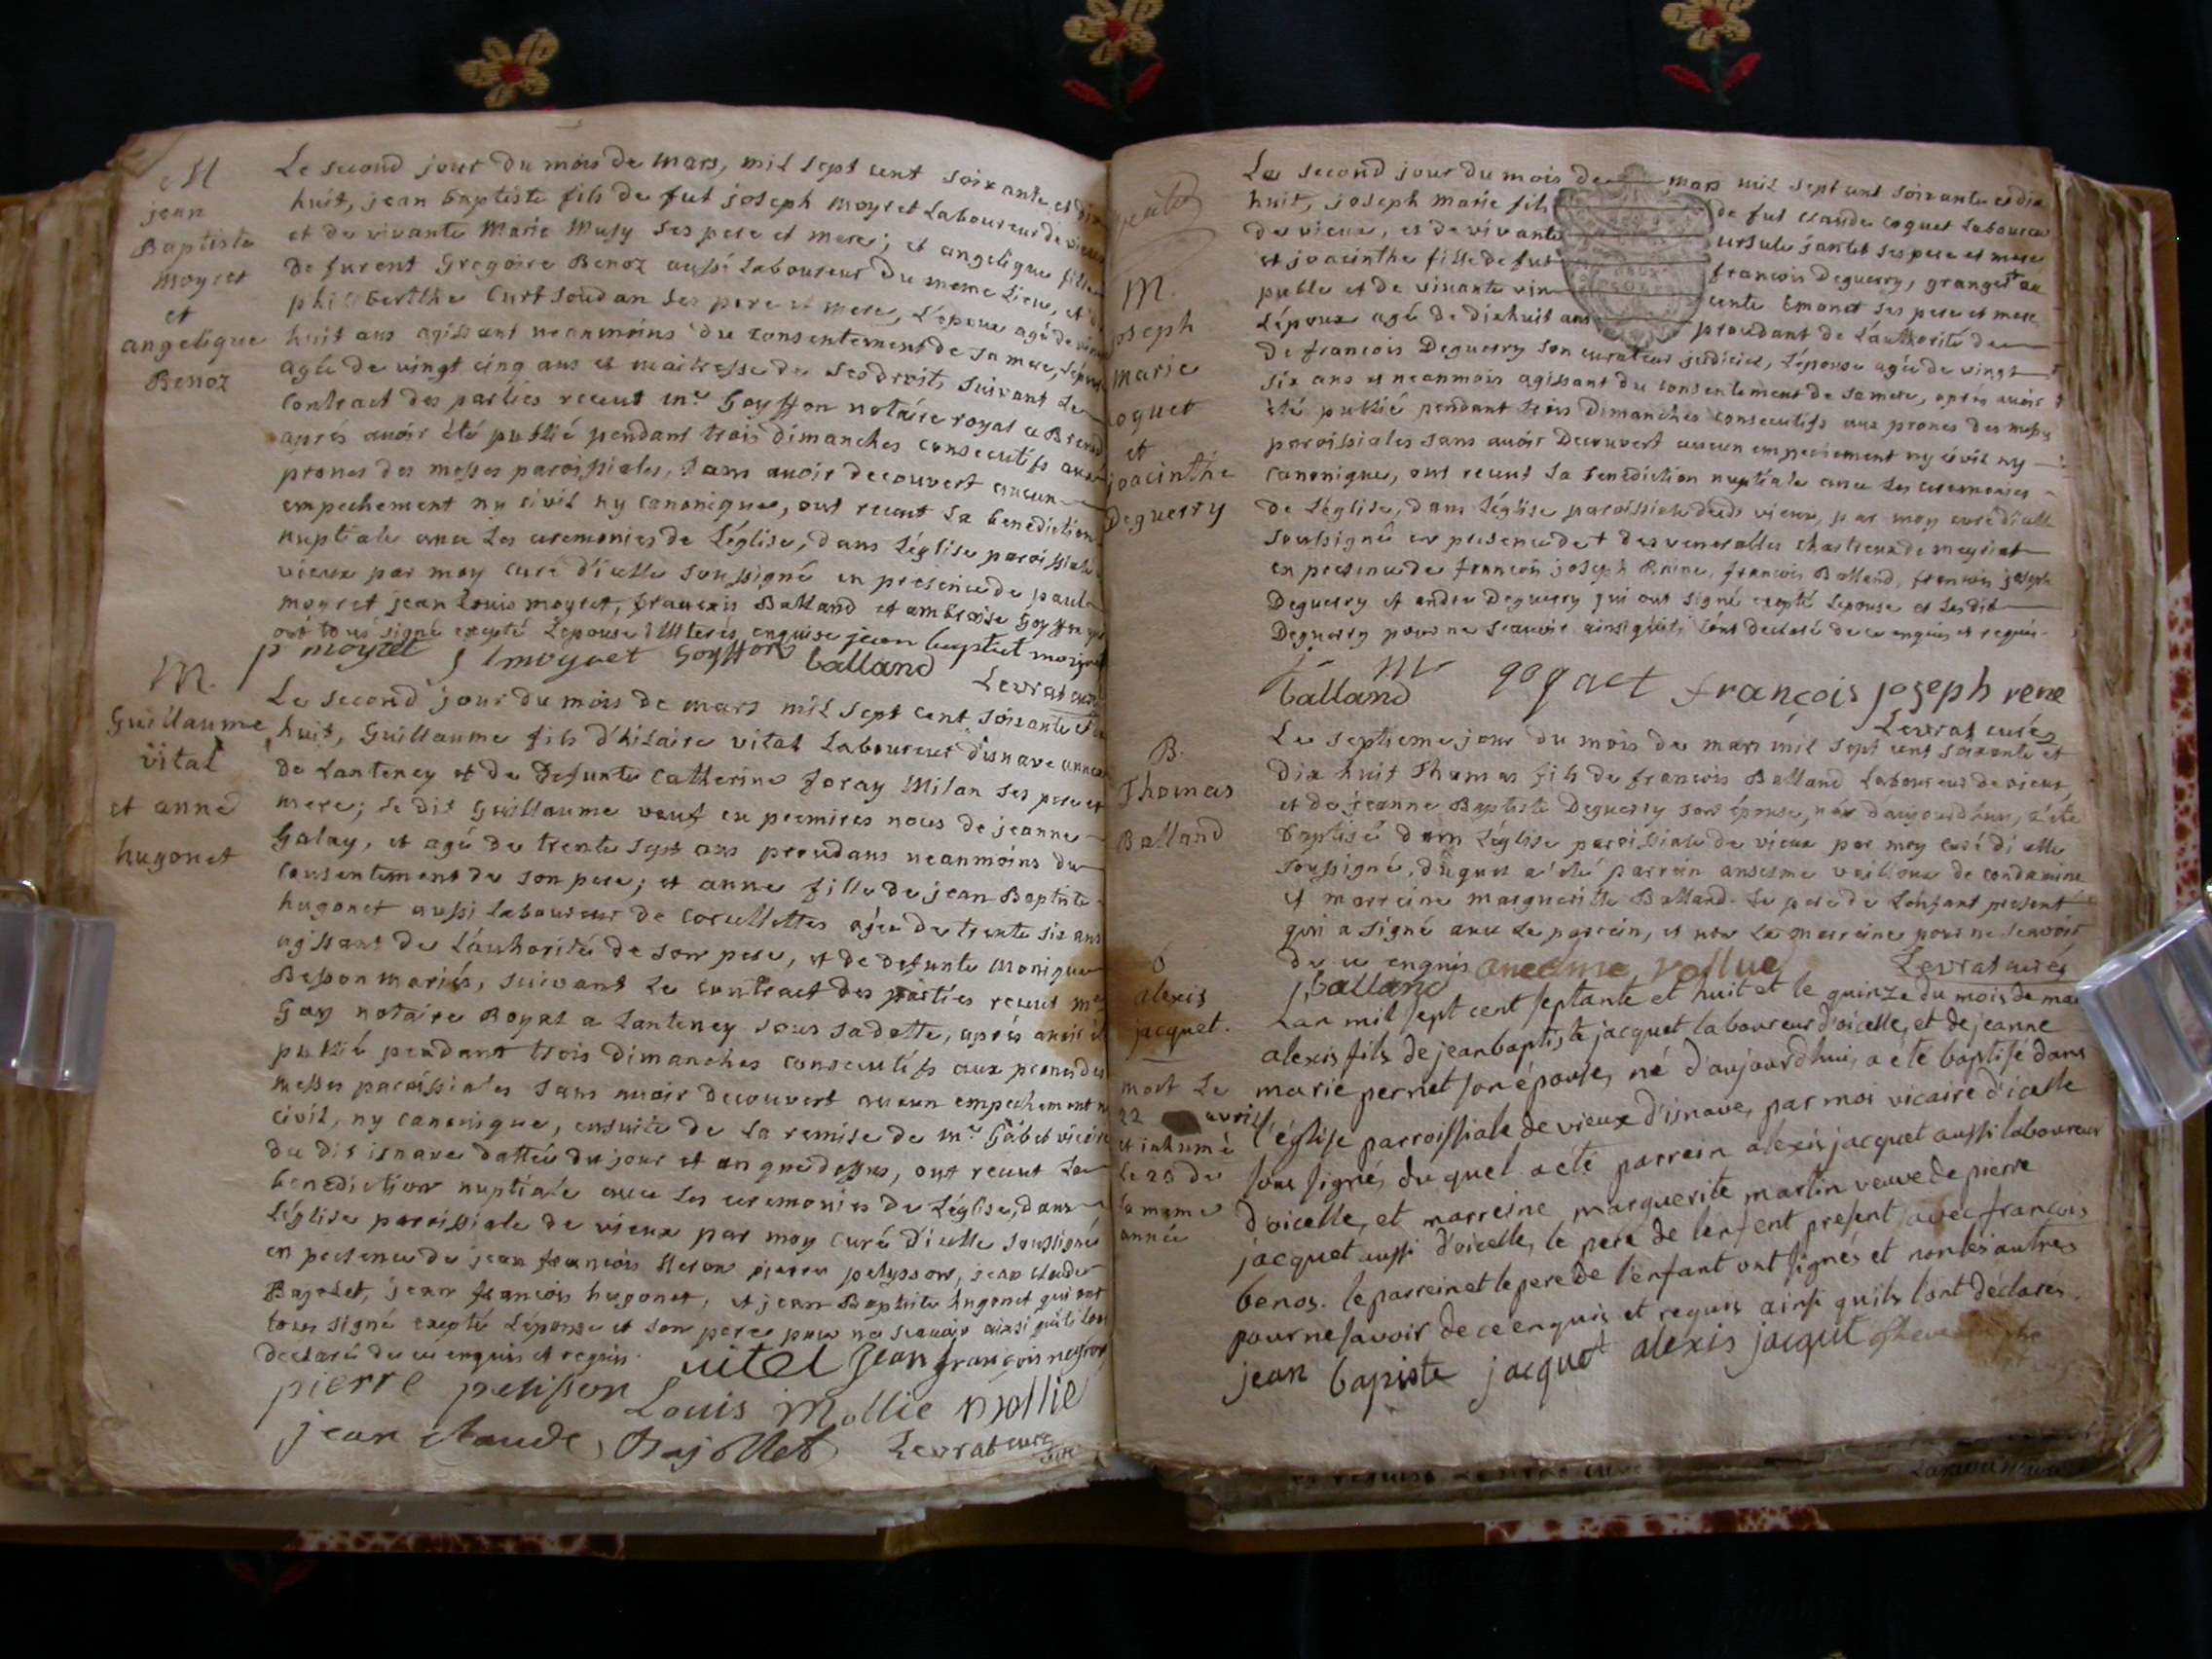 M
jean
Baptiste
moyret
et
angelique
Benoz
Le second jour du mois de mars, mil sept cent soixante et dix
huit, jean baptiste fils de fut joseph moyret Laboureur de vieux
et de vivante Marie Musy ses pere et mere; et angelique fille
de furent Gregoire Benoz aussi Laboureur du meme Lieu, et de
philiberthe Curt soudan ses pere et mere, L'époux agé de vingt
huit ans agissant neanmoins du consentement de sa mere, L'épouse
agée de vingt cinq ans et maitresse de ses droits suivant Le
Contract des parties receut me Goyffon notaire royal a Brenod
aprés avoir été publié pendant trois dimanches consecutifs aux
prones des messes paroissiales, sans avoir decouvert aucun
empechement ny civil ny canonique, ont receut La benediction
nuptiale avec Les ceremonies de L'église, dans L'église paroissiale
vieux par moy curé d'icelle soussigné en presence de paul
moyret jean Louis moyret, francois Balland et ambroise Goyffon qui
ont tous signé excepté L'épouse illiterée enquise jean baptiet moyret
p moyret j l moyret Goyffon balland Levrat curé
M.
Guillaume
vital
et anne
hugonet
Le second jour du mois de mars mil sept cent soixante et dix
huit, Guillaume fils d'hilaire vital Laboureur d'isnave annexe
de Lanteney et de Defunte Catherine foray Milan ses pere et
mere; Le dit Guillaume veuf en premires noces de jeanne
Galay, et agé de trente sept ans procedans neanmoins du
Consentement de son pere; et anne fille de jean Baptiste
hugonet aussi Laboureur de Corcellettes agée de trente six ans
agissant de L'authorité de son pere, et de defunte Monique
Besson mariés, suivant Le contract des parties receut me
Gay notaire Royal a Lanteney sous sa datte, aprés avoir été
publié pendant trois dimanches consecutifs aux prones des
messes paroissiales sans avoir decouvert aucun empechement ny
civil, ny canonique, ensuite de La remise de mr Gabet vicaire
du dit isnave dattée du jour et an que dessus, ont receut La
benediction nuptiale avec Les ceremonies de L'église, dans
L'église paroissiale de vieux par moy curé d'icelle soussigné
en presence de jean francois pierre pelysson, jean claude
Bajolet, jean francois hugonet, et jean Baptiste hugonet qui ont
tous signé excepté L'épouse et son pere pour ne scavoir ainsi qu'ils l'ont
declaré de ce enquis et requis. vitel jean françois negron
pierre pelisson Louis Mollie Mollie
jean claude Bajollet Levrat curé
M.
joseph
marie
Coquet
et
joacinthe
Deguerry
Le second jour du mois de mars mil sept cent soixante et dix
huit, joseph marie fils de fut claude coquet Laboureur
de vieux, et de vivante ursule jantet ses pere et mere
et joacinthe fille de fut francois Deguerry, granget au
puble et de vivante vincente Emonet ses pere et mere
L'époux agé de dixhuit ans procedant de L'authorité de
de francois Deguerry son curateur judiciel, L'épouse agée de vingt
six ans et neanmois agissant du consentement de sa mere, aprés avoir
été publié pendant trois dimanches consecutifs aux prones des messes
paroissiales sans avoir Decouvert aucun empechement ny civil ny
canonique, ont receut La benediction nuptiale avec Les ceremonies
de L'église, dans L'église paroissiale dudit vieux, par moy curé d'icelle
soussigné en presence de + des venerables chartreux de meyriat
en presence de francois joseph Reine, francois Balland, francois joseph
Deguerry et andre Deguerry qui ont signé excepté L'epouse et Lesdit
Deguerry pour ne scavoir ainsi qu'ils l'ont declaré de ce enquis et requis.
j m qogact françois joseph rene
balland
Levrat curés
B.
Thomas
Balland
Le septieme jour du mois de mars mil sept cent soixante et
dix huit Thomas fils de francois Balland Laboureur de vieux,
et de jeanne Baptiste Deguerry son épouse, néz d'aujourd'huy, a été
baptisé dans L'église paroissiale de vieux par moy curé d'icelle
soussigné, duquel a été parrain anselme vailloux de condamine
et marreine marguerite Balland. Le pere de L'enfant present
qui a signé avec Le parrein, et non La marreine pour ne scavoir
de ce enquis anceême vollue Levrat curés
f balland
b
alexis
jacquet.
mort Le
22 avril
et inhumé
Le 23 de
la meme
année
Lan mil sept cent septante et huit et le quinze du mois de mars
alexis fils de jean baptiste jacquet laboureur d'oicelle, et de jeanne
marie pernet son épouse, né d'aujourd'hui, a été baptisé dans
l'église parroissiale de vieux d'isnave, par moi vicaire d'icelle
sous signé, du quel a eté parrein alexis jacquet aussi laboureur
d'oicelle, et marreine marguerite martin veuve de pierre
jacquet aussi d'oicelle, le pere de lenfent present avec francois
benos. le parrein et le pere de l'enfant ont signés et non les autres
pour ne savoir de ce enquis et requis ainsi quils l'ont déclarés.
jean bapiste jacquet alexis jacqut